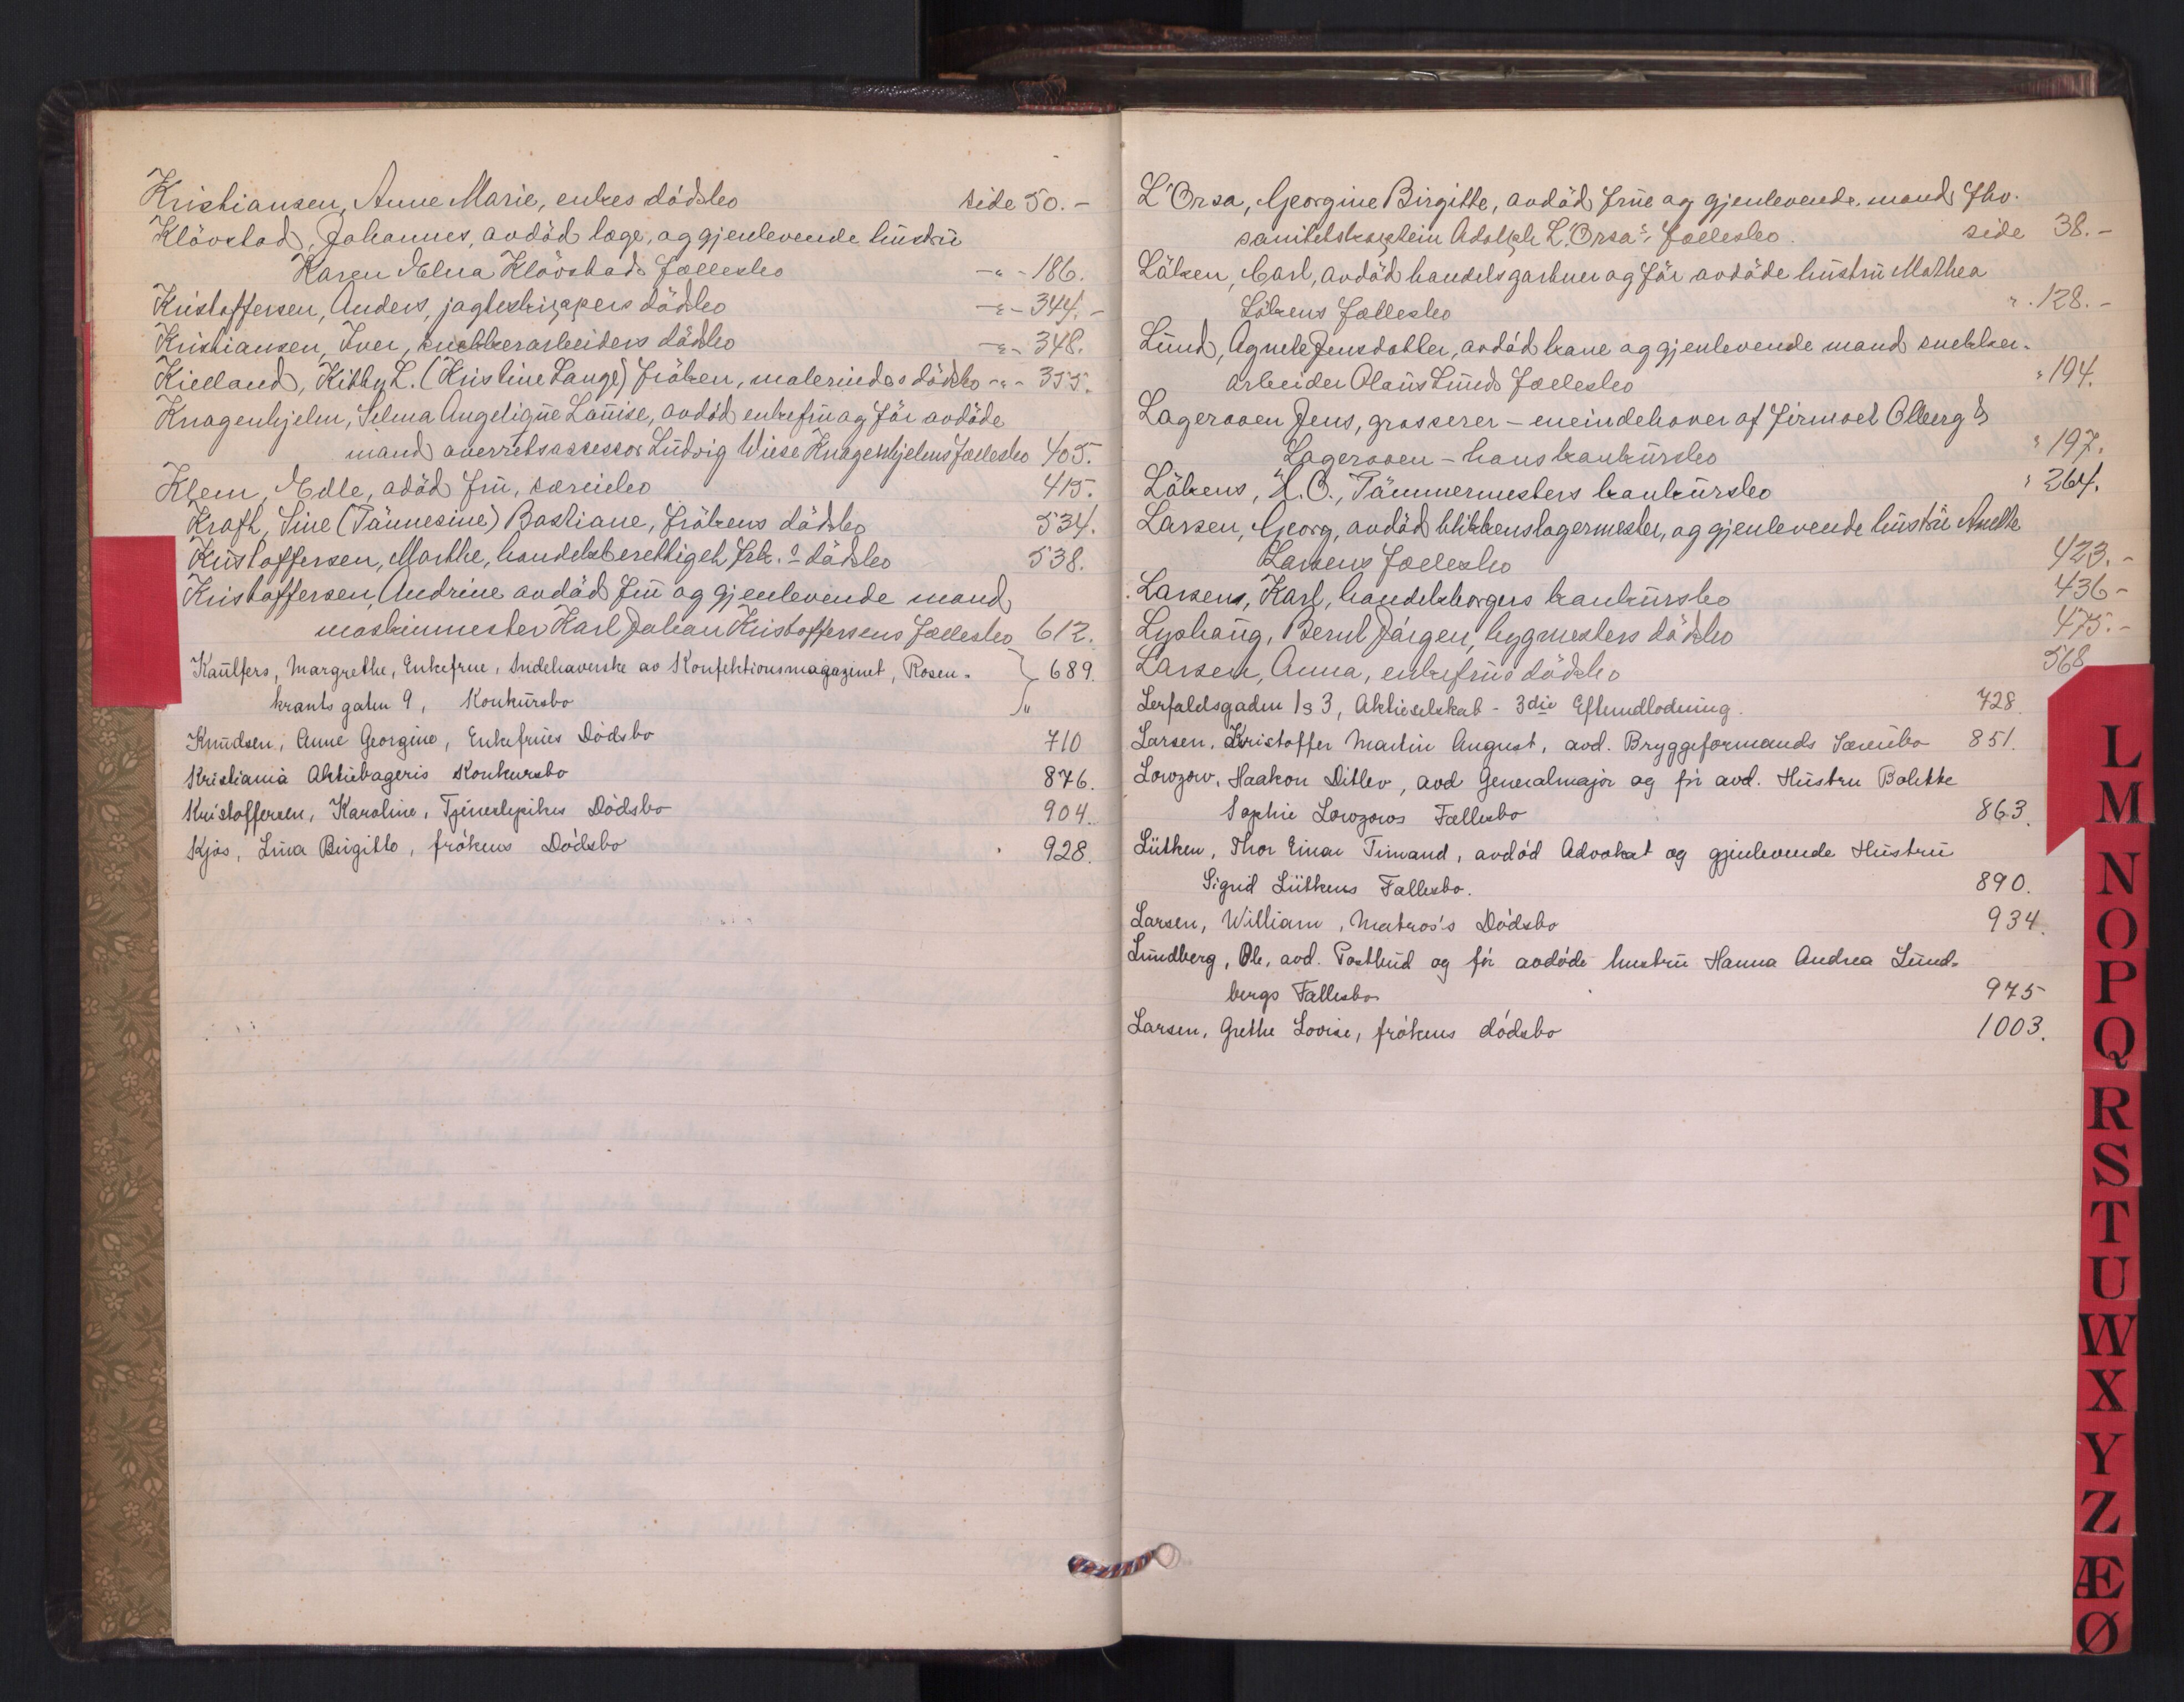 Kristiansen, Anne Marie, enkes dödsbo side 50.-
Klövstad, Johannes, avdöd læge, og gjenlevende hustru
Karen Elna Klövstads fællesbo -"- 186.
Kristoffersen, Anders, jagteskippers dödsbo -"- 344.-
Kristiansen, Iver, snekkerarbeiders dödsbo -"- 348.
Kielland, Kitty L. (Kristine Lange) fröken, malerindes dödsbo -"- 355.
Knagenhjelm, Selma Angelique Louise, avdöd enkefru og för avdöde
mand overretsassessor Ludvig Wiese Knagenhjelms fællesbo 405.
Klem, Edle, adöd fru, særeiebo 415.
Kraft, Sine (Tännesine) Bastiane, frökens dödsbo 534.
Kristoffersen, Marthe, handelsberettiget frk.s dödsbo 538.
Kristoffersen, Andrine avdöd fru og gjenlevende mand
maskinmester Karl Johan Kristoffersens fællesbo 612.
Kaulfers, Margrethe, Enkefrue, Indehaverske av Konfektionsmagazinet, Rosen- 689.
krantsgaten 9, Konkursbo "
Knudsen, Anne Georgine, Enkefrues Dödsbo 710
Kristiania Aktiebageris Konkursbo 876.
Kristoffersen, Karoline, Tjenestepikes Dödsbo 904.
Kjos, Lina Birgitte, frökens Dödsbo 928.
L'Orsa, Georgine Birgitte, avdöd frue og gjenlevende mand fhv.
sanitetskaptein Adolph L'Orsa's fællesbo. side 38.-
Löken, Carl, avdöd handelsgartner og för avdöde hustru Mathea
Lökens fællesbo " 128.-
Lund, Agnete Jensdatter, avdöd kone og gjenlevende mand snekker-
arbeider Olaus Lunds fællesbo " 194.
Lageraaen Jens, grosserer - eneindehaver af firmaet Olberg &
Lageraaen - hans konkursbo " 197.
Lökens, H. O., Tömmermesters konkursbo " 264.
Larsen, Georg, avdöd blikkenslagermester, og gjenlevende hustru Anette
Larsens fællesbo 423.-
Larsens, Karl, handelsborgers konkursbo 436-
Lyshaug, Bernt Jörgen, bygmesters dödsbo 475.-
Larsen, Anna, enkefrus dödsbo 568
Lerfaldsgaden 1 & 3, Aktieselskab - 3die Efterudlodning. 728
Larsen, Kristoffer Martin August, avd. Bryggeformands Særeiebo 851.
Lowzow, Haakon Ditlev, avd Generalmajor og för avd. Hustru Bolette
Sophie Lowzows Fællesbo 863.
Lütken, Thor Einar Timand, avdöd Advokat og gjenlevende Hustru
Sigrid Lütkens Fællesbo. 890.
Larsen, William, Matros's Dödsbo 934.
Lundberg, Ole, avd. Postbud og för avdöde hustru Hanna Andrea Lund-
bergs Fællesbo 975
Larsen, Grethe Lovise, frökens dödsbo 1003.
L
M
N
O
P
Q
R
S
T
U
W
X
Y
Z
Æ
Ø